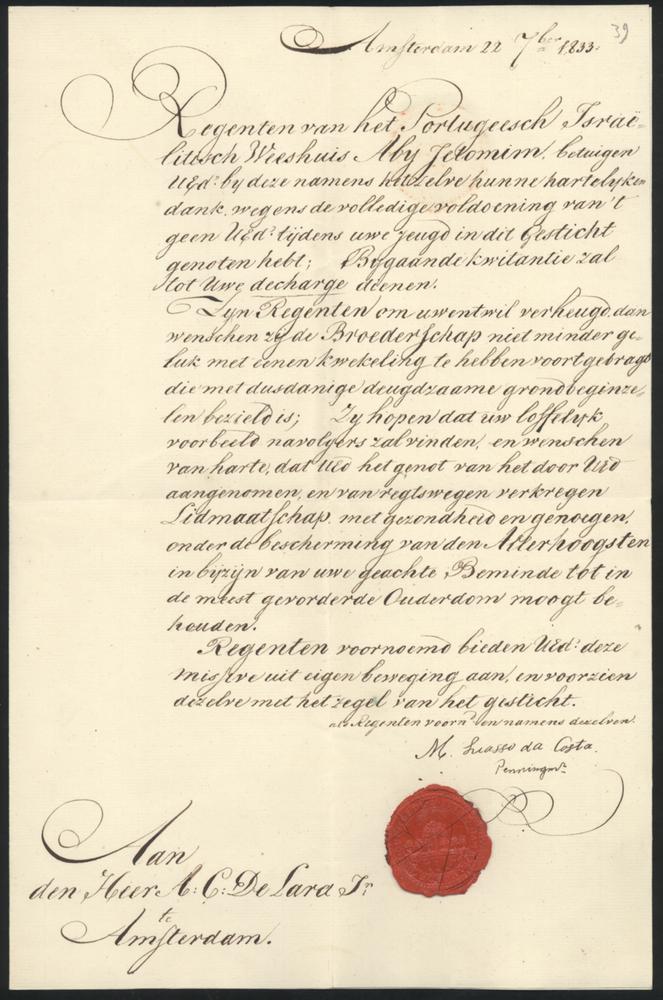 39
Amsterdam 22 7ber 1833.
Regenten van het Portugeesch Israë-
litisch Weeshuis Aby Jetomim, betuigen
UEd: by deze namens hetzelve hunne hartelyken
dank, wegens de volledige voldoening van 't
geen UEd: tijdens uwe jeugd in dit Gesticht
genoten hebt; Bygaande kwitantie zal
tot Uwe decharge dienen.
Zyn Regenten om uwentwil verheugd, dan
wenschen zy de Broederschap niet minder ge-
luk met eenen kwekeling te hebben voortgebragt
die met dusdanige deugdzaame grondbeginze-
len bezield is; Zy hopen dat uw loffelyk
voorbeeld navolgers zal vinden, en wenschen
van harte, dat UEd het genot van het door UEd
aangenomen, en van regtswegen verkregen
Lidmaatschap, met gezondheid en genoegen,
onder de bescherming van den Allerhoogsten
in byzyn van uwe geachte Beminde tot in
de meest gevorderde Ouderdom moogt be-
houden.
Regenten voornoemd bieden UEd: deze
missive uit eigen beweging aan, en voorzien
dezelve met het zegel van het gesticht.
als Regenten voornd en namens dezelven.
M. Suasso da Costa
Penningmr
Aan
den Heer A: C: De Lara Jr
te
Amsterdam.